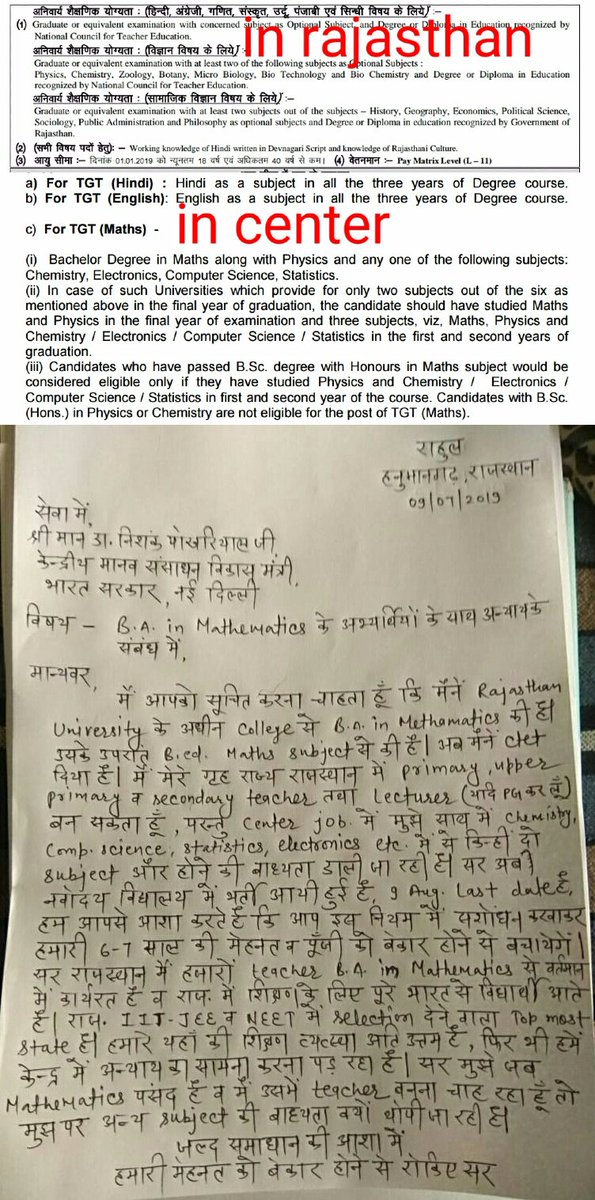 अनिवार्य शैक्षणिक योग्यता : (हिन्दी, अंग्रेजी, गणित, संस्कृत, उर्दू, पंजाबी एवं सिन्धी विषय के लिये) :-
(1) Graduate or equivalent examination with concerned subject as Optional Subject and Degree or Diploma in Education recognized by
National Council for Teacher Education.
in rajasthan
अनिवार्य शैक्षणिक योग्यता : (विज्ञान विषय के लिये) :-
Graduate or equivalent examination with at least two of the following subjects as Optional Subjects :
Physics, Chemistry, Zoology, Botany, Micro Biology, Bio Technology and Bio Chemistry and Degree or Diploma in Education
recognized by National Council for Teacher Education.
अनिवार्य शैक्षणिक योग्यता : (सामाजिक विज्ञान विषय के लिये) :-
Graduate or equivalent examination with at least two subjects out of the subjects – History, Geography, Economics, Political Science,
Sociology, Public Administration and Philosophy as optional subjects and Degree or Diploma in education recognized by Government of
Rajasthan.
(2) (सभी विषय पदों हेतु): – Working knowledge of Hindi written in Devnagari Script and knowledge of Rajasthani Culture.
(3) आयु सीमा :– दिनांक 01.01.2019 को न्यूनतम 18 वर्ष एवं अधिकतम 40 वर्ष से कम। (4) वेतनमान :– Pay Matrix Level (L – 11)
a) For TGT (Hindi) : Hindi as a subject in all the three years of Degree course.
b) For TGT (English): English as a subject in all the three years of Degree course.
in center
c) For TGT (Maths) -
(i) Bachelor Degree in Maths along with Physics and any one of the following subjects:
Chemistry, Electronics, Computer Science, Statistics.
(ii) In case of such Universities which provide for only two subjects out of the six as
mentioned above in the final year of graduation, the candidate should have studied Maths
and Physics in the final year of examination and three subjects, viz, Maths, Physics and
Chemistry / Electronics / Computer Science / Statistics in the first and second years of
graduation.
(iii) Candidates who have passed B.Sc. degree with Honours in Maths subject would be
considered eligible only if they have studied Physics and Chemistry / Electronics /
Computer Science / Statistics in first and second year of the course. Candidates with B.Sc.
(Hons.) in Physics or Chemistry are not eligible for the post of TGT (Maths).
राहुल
हनुमानगढ़, राजस्थान
09/07/2019
सेवा में,
श्री मान डा. निशंक पोखरियाल जी,
केन्द्रीय मानव संसाधन विकास मंत्री,
भारत सरकार, नई दिल्ली
विषय – B.A. in Mathematics के अभ्यर्थियों के साथ अन्याय के
संबंध में,
मान्यवर,
में आपको सूचित करना चाहता हूँ कि मैंनें Rajasthan
University के अधीन College से B.A. in Methamatics की है।
उसके उपरांत B.ed. Maths subject से की है। अब मैंने ctet
दिया है। में मेरे गृह राज्य राजस्थान में primary, upper
primary व secondary teacher तथा Lecturer (यदि PG कर लूँ)
बन सकता हूँ, परन्तु center job में मुझे साथ में chemistry,
Comp. science, statistics, electronics etc. में से किन्हीं दो
subject और होने की बाध्यता डाली जा रही है। सर अब
नवोदय विद्यालय में भर्ती आयी हुई है, 9 Aug. Last date है,
हम आपसे आशा करते है कि आप इस नियम में संशोधन करवाकर
हमारी 6-7 साल की मेहनत व पूँजी को बेकार होने से बचायेगें।
सर राजस्थान में हजारों teacher B.A. in Mathematics से वर्तमान
में कार्यरत है व राज. में शिक्षण के लिए पूरे भारत से विद्यार्थी आते
है। राज. IIT-JEE व NEET में selection देने वाला Top most
state है। हमारे यहाँ की शिक्षण व्यवस्था अति उत्तम है, फिर भी हमें
केन्द्र में अन्याय का सामना करना पड़ रहा है। सर मुझे जब
Mathematics पसंद है व में उसमें teacher बनना चाह रहा हूँ तो
मुझ पर अन्य subject की बाध्यता क्यों थोपी जा रही है।
जल्द समाधान की आशा में
हमारी मेहनत को बेकार होने से रोकिए सर